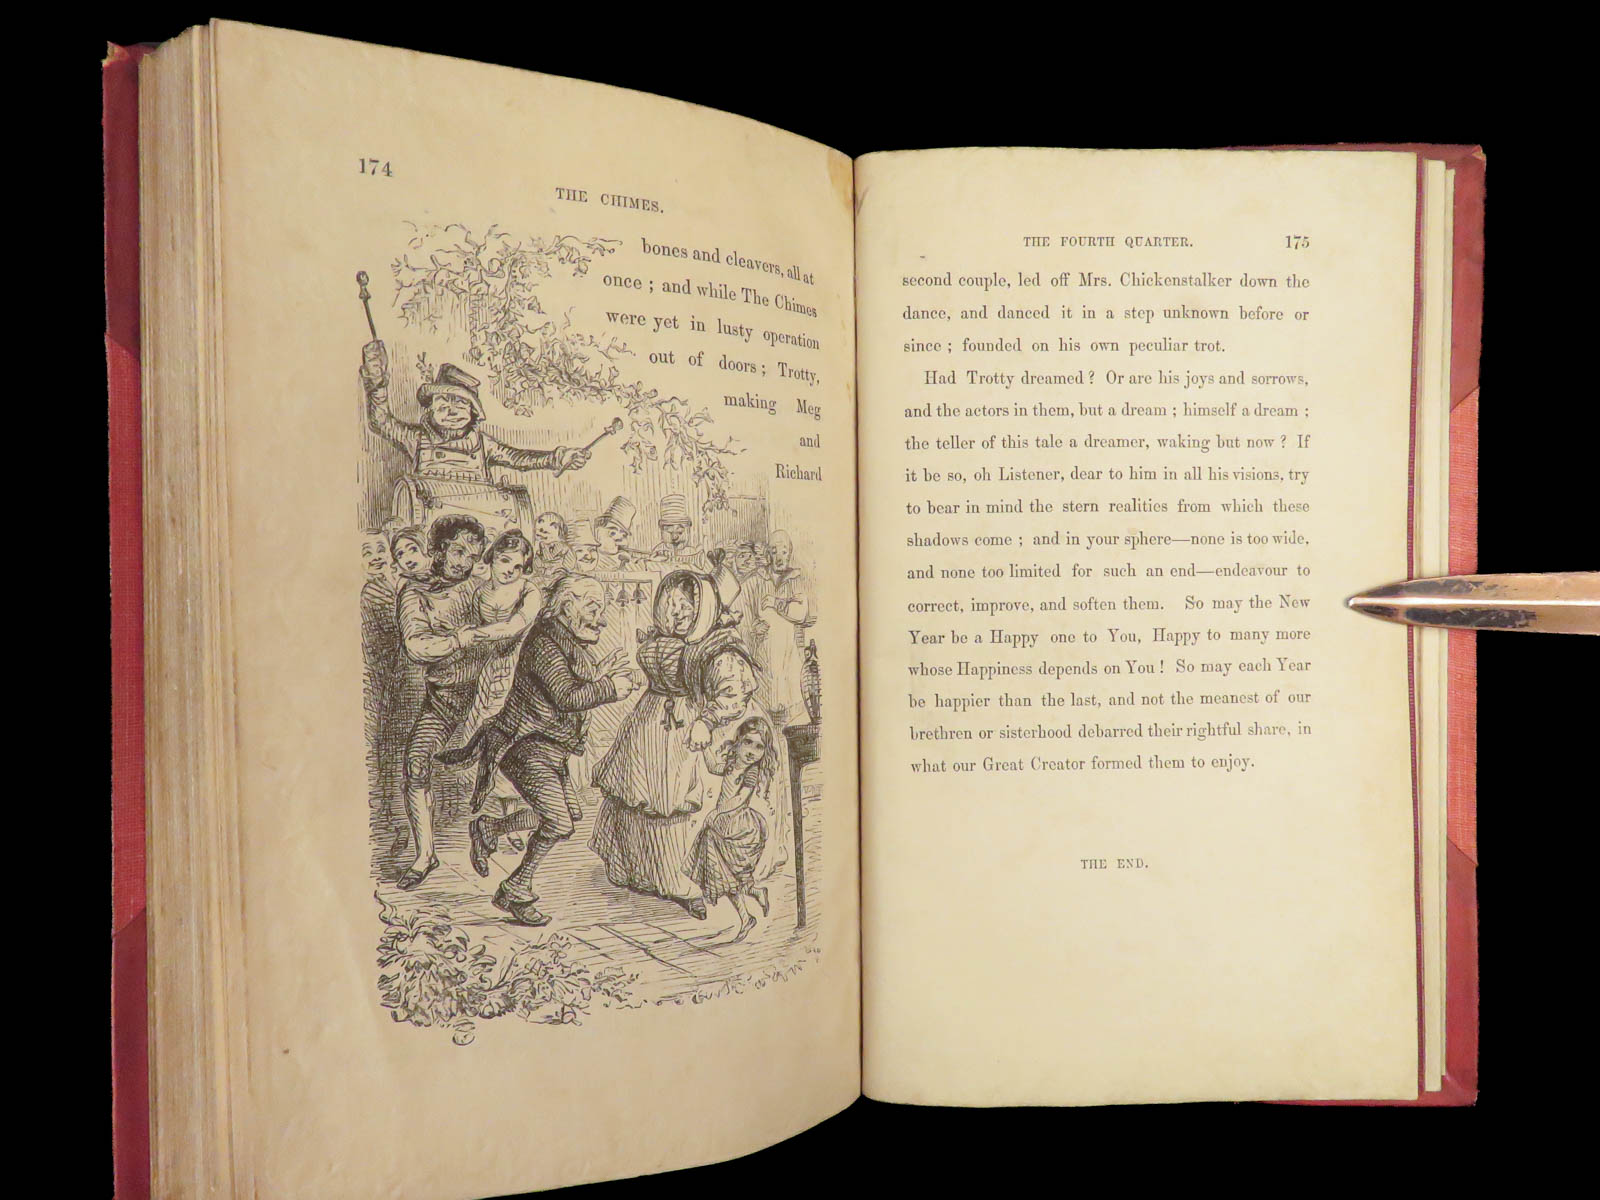 174
THE CHIMES.
bones and cleavers, all at
once ; and while The Chimes
were yet in lusty operation
out of doors ; Trotty,
making Meg
and
Richard
THE FOURTH QUARTER. 175
second couple, led off Mrs. Chickenstalker down the
dance, and danced it in a step unknown before or
since ; founded on his own peculiar trot.
Had Trotty dreamed ? Or are his joys and sorrows,
and the actors in them, but a dream ; himself a dream ;
the teller of this tale a dreamer, waking but now ? If
it be so, oh Listener, dear to him in all his visions, try
to bear in mind the stern realities from which these
shadows come ; and in your sphere—none is too wide,
and none too limited for such an end—endeavour to
correct, improve, and soften them. So may the New
Year be a Happy one to You, Happy to many more
whose Happiness depends on You ! So may each Year
be happier than the last, and not the meanest of our
brethren or sisterhood debarred their rightful share, in
what our Great Creator formed them to enjoy.
THE END.